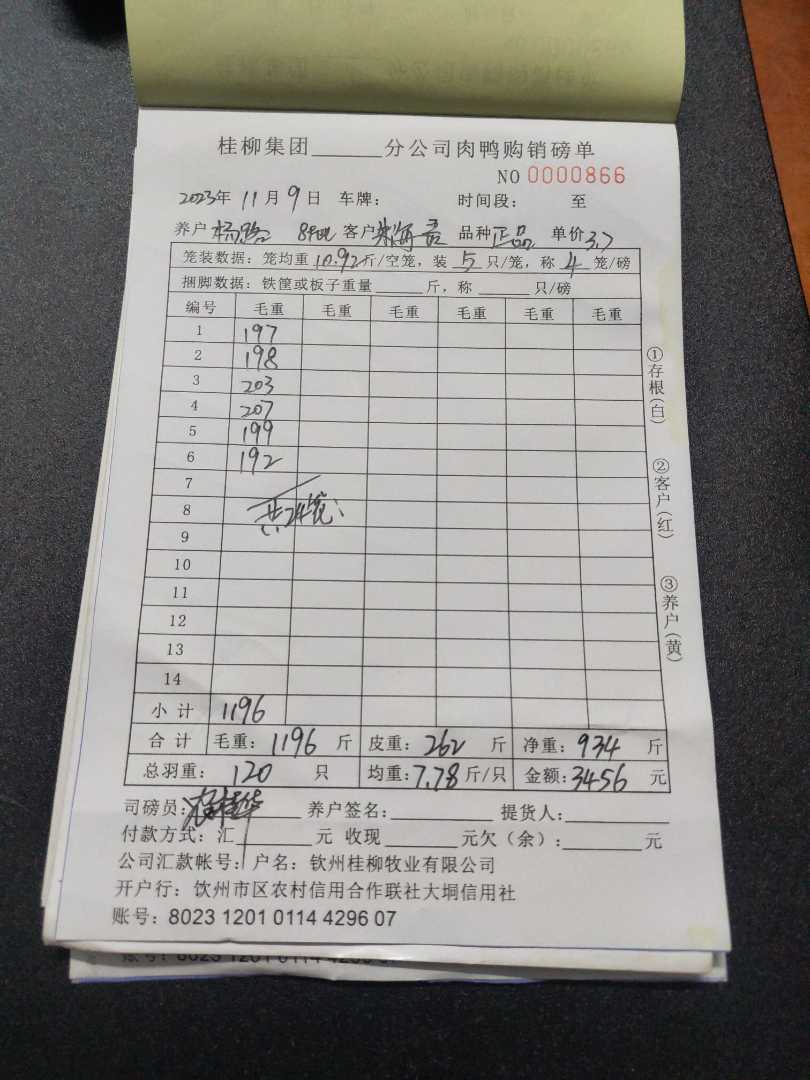 桂柳集团______分公司肉鸭购销磅单
NO 0000866
2023年 11月 9日 车牌： 时间段： 至
养户 杨 客户 品种 正品 单价 3.7
笼装数据：笼均重 10.92斤/空笼，装 5 只/笼，称 4 笼/磅
捆脚数据：铁筐或板子重量______斤，称______只/磅
编号 毛重 毛重 毛重 毛重 毛重 毛重
1 197
2 198
3 203
4 207
5 199
6 192
7
8 共24笼
9
10
11
12
13
14
小计 1196
合计 毛重：1196 斤 皮重：262 斤 净重：934 斤
总羽重： 120 只 均重：7.78斤/只 金额：3456 元
①存根(白)
②客户(红)
③养户(黄)
司磅员： 养户签名：________ 提货人：________
付款方式：汇______元 收现______元欠（余）：______元
公司汇款帐号：户名：钦州桂柳牧业有限公司
开户行：饮州市区农村信用合作联社大垌信用社
账号：8023 1201 0114 4296 07